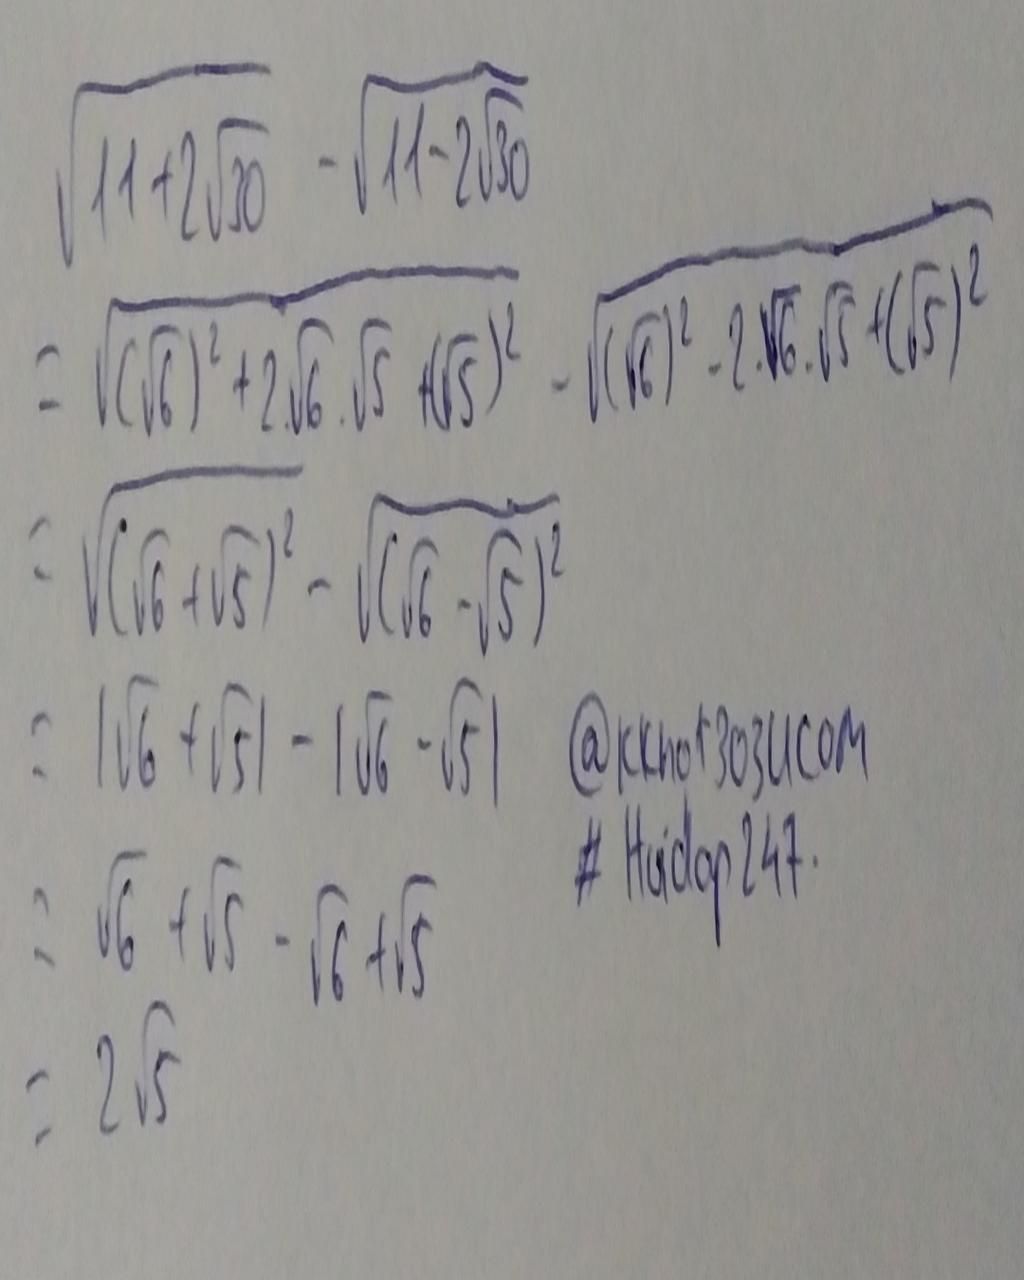 √(11+2√30) - √(11-2√30)
= √((√6)² + 2.√6.√5 + (√5)²) - √((√6)² - 2.√6.√5 + (√5)²)
= √((√6 + √5)²) - √((√6 - √5)²)
= |√6 + √5| - |√6 - √5|
@kkhot3034com
# Hoidap247.
= √6 + √5 - √6 + √5
= 2√5